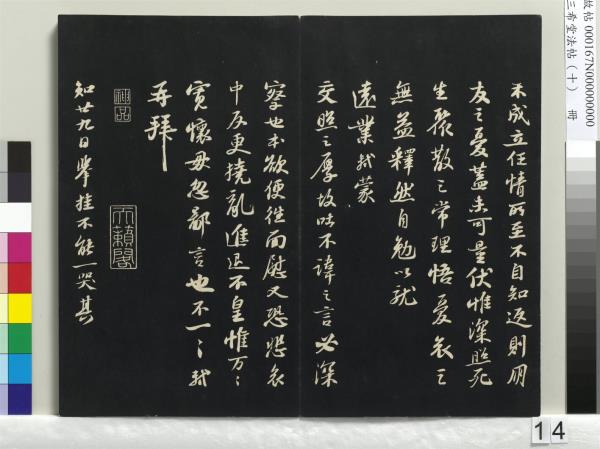 未成立任情所至不自知返則朋
友之憂蓋未可量伏惟深照死
生聚散之常理悟憂哀之
無益釋然自勉以就
遠業軾蒙
交照之厚故吐不諱之言必深
察也本欲便往而慰又恐悲哀
中反更撓亂進退不皇惟萬萬
寬懷毋忽鄙言也不一一軾
再拜
神品
天籟閣
知廿九日舉挂不能一哭其
故帖 000167N000000000
三希堂法帖（十） 冊
14